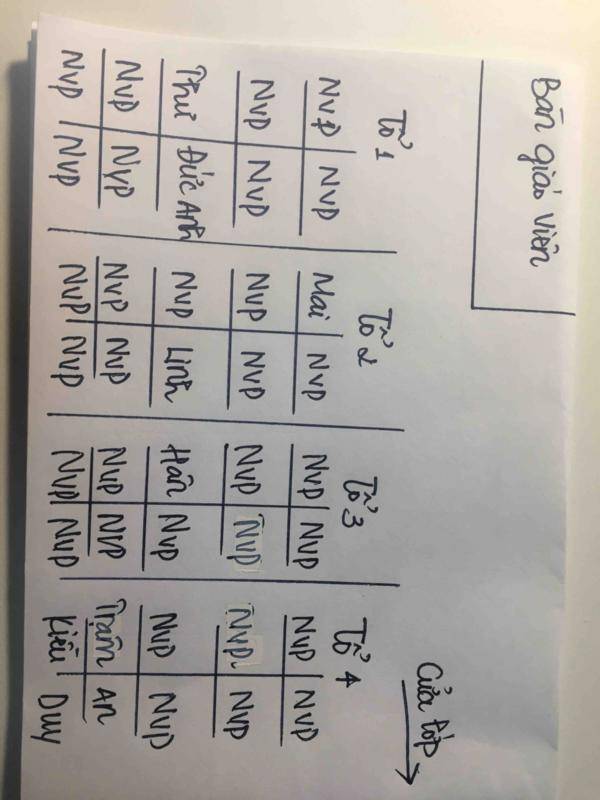 Bàn giáo viên
Cửa lớp
Tổ 1 Tổ 2 Tổ 3 Tổ 4
NVP NVP Mai NVP NVP NVP NVP NVP
NVP NVP NVP NVP NVP NVP NVP NVP
Thư Đức Anh NVP Linh Hân NVP NVP NVP
NVP NVP NVP NVP NVP NVP Trâm An
NVP NVP NVP NVP NVP NVP Kiều Duy